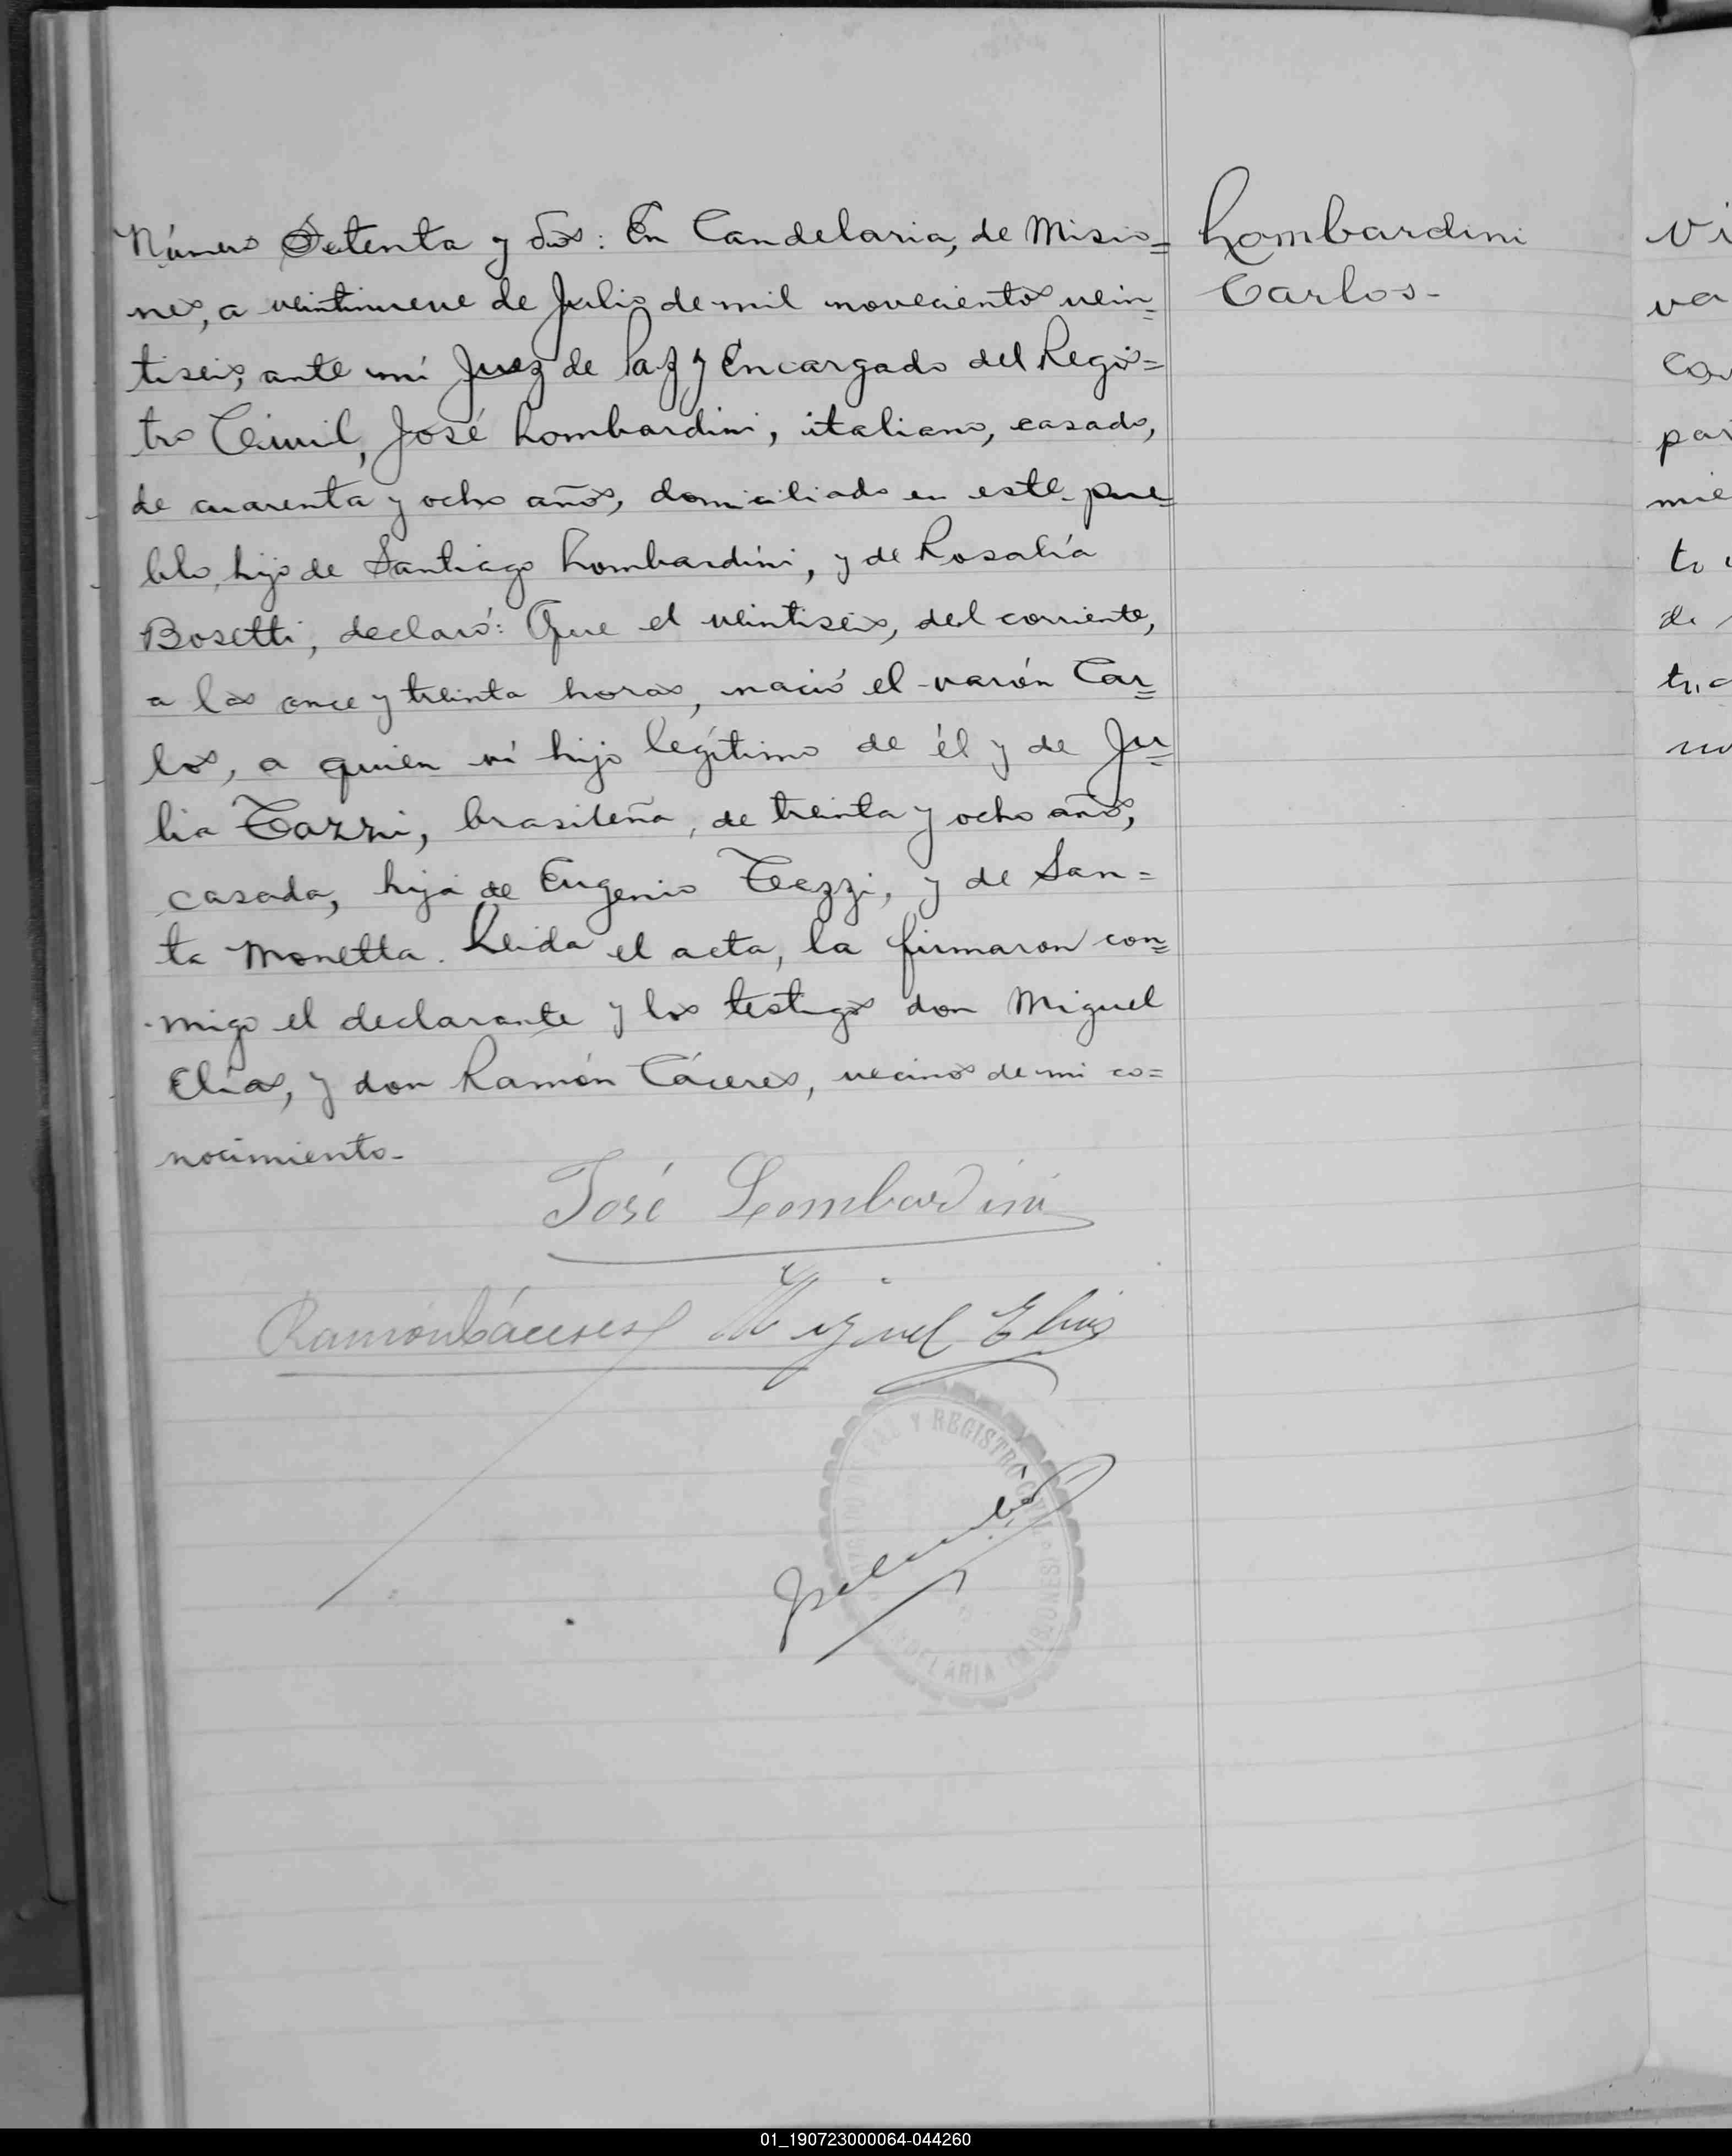 Número Setenta y dos: En Candelaria, de Misio=
nes, a veintinueve de Julio de mil novecientos vein=
tiseis, ante mí Juez de Paz y Encargado del Regis=
tro Civil, José Lombardini, italiano, casado,
de cuarenta y ocho años, domiciliado en este pue=
blo, hijo de Santiago Lombardini, y de Rosalía
Bosetti, declaró: Que el veintiseis, del corriente,
a las once y treinta horas, nació el varón Car=
los, a quien ví hijo legítimo de él y de Ju=
lia Tazzi, brasileña, de treinta y ocho años,
casada, hija de Eugenio Tezzi, y de San=
ta Monetta. Leida el acta, la firmaron con=
migo el declarante y los testigos don Miguel
Elías, y don Ramón Cáceres, vecinos de mi co=
nocimiento-
Lombardini
Carlos-
José Lombardini
Ramón Cáceres Miguel Elias
Y REGISTRO CIVIL
CANDELARIA (MISIONES)
Vi
va
par
mie
to
de
no
01_190723000064-044260